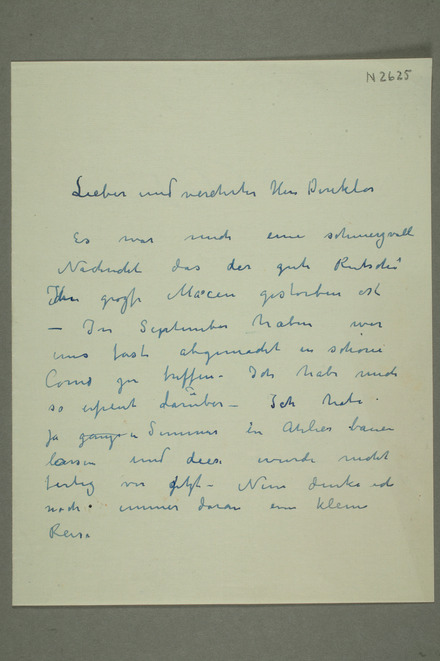 N 2625
Lieber und verehrter Herr Direktor
Es war mich eine schmerzvolle
Nachricht das der gute
Ihr große Mäcen gestorben ist
— Im September haben wir
uns fast abgemacht in schöne
Como zu treffen – Ich habe mich
so erfreut darüber – Ich habe
ja ganzen Sommer Ein Atelier bauen
lassen und dies wurde nicht
fertig vor jetzt – Nun denke ich
noch immer daran eine kleine
Reise